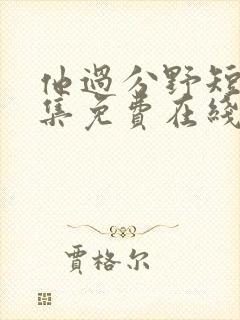 他過分野短
集免費在綫
賈格尔